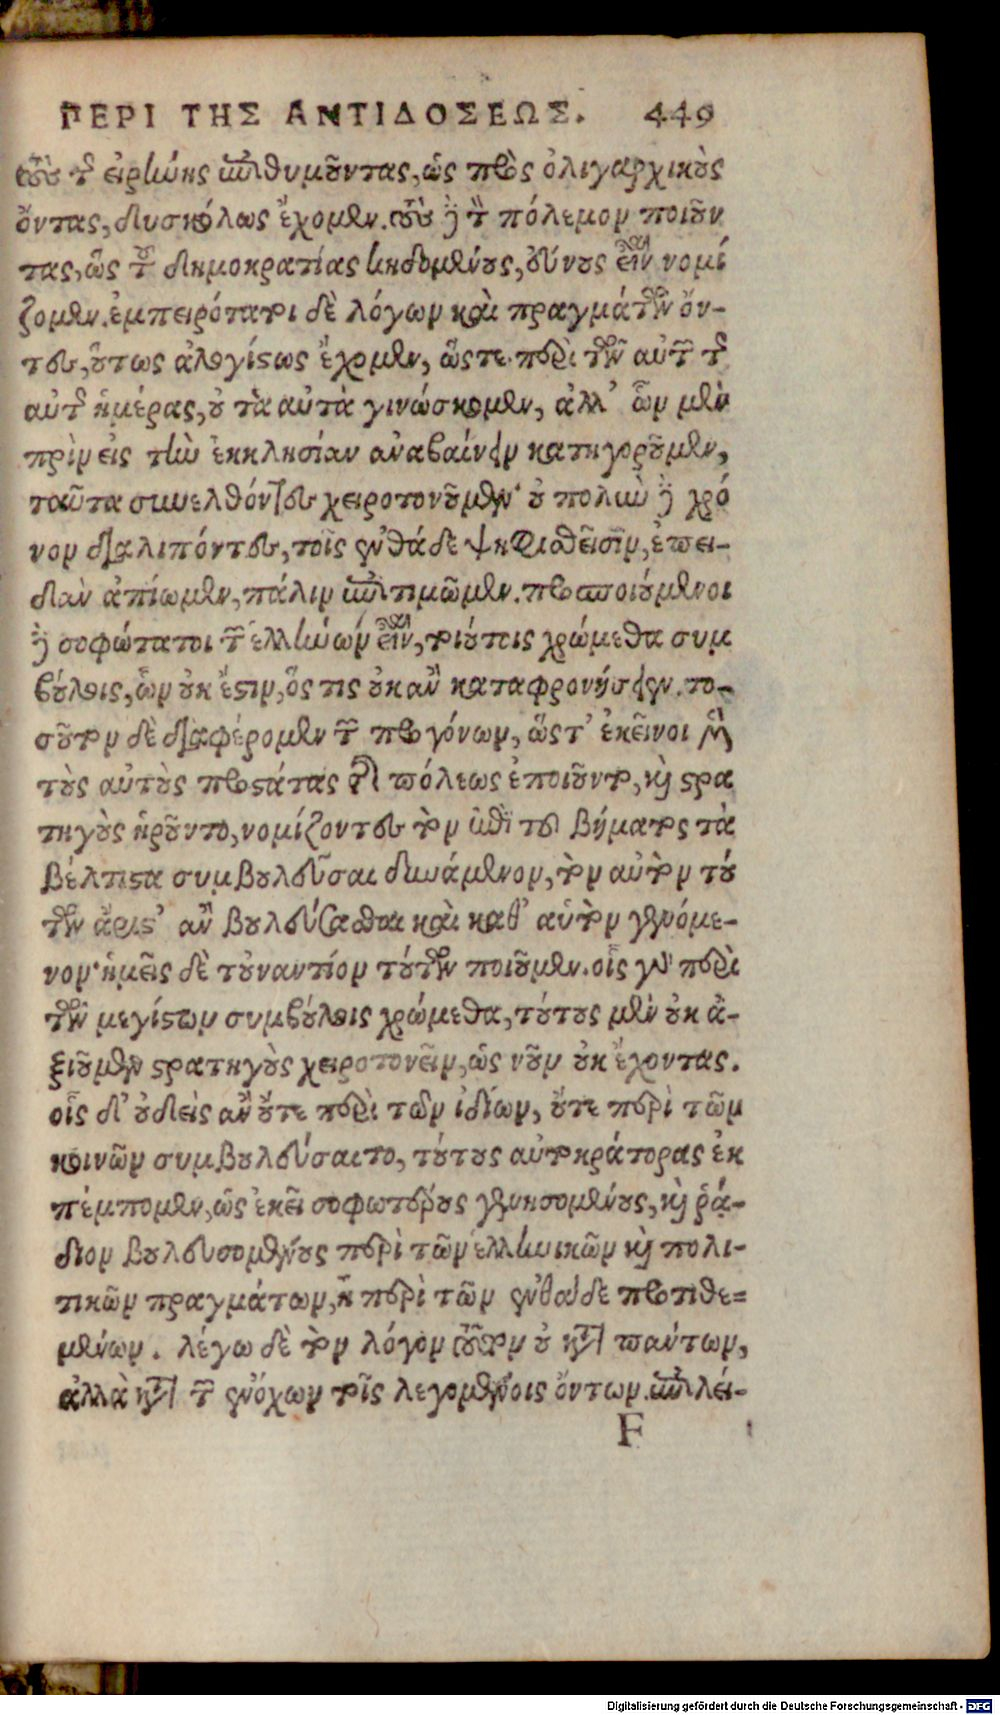 ΠΕΡΙ ΤΗΣ ΑΝΤΙΔΟΣΕΩΣ. 449
τοὺς τῆς εἰρήνης ἐπιθυμοῦντας, ὡς πρὸς ὀλιγαρχικοὺς
ὄντας, δυσκόλως ἔχομεν. τοὺς δὲ τὸν πόλεμον ποιοῦν
τας, ὡς τῆς δημοκρατίας κηδομένους, εὔνους εἶναι νομί
ζομεν. ἐμπειρότατοι δὲ λόγων καὶ πραγμάτων ὄν-
τες, οὕτως ἀλογίστως ἔχομεν, ὥστε περὶ τῶν αὐτῶν τῆς
αὐτῆς ἡμέρας, οὐ τὰ αὐτὰ γινώσκομεν, ἀλλ’ ὧν μὲν
πρὶν εἰς τὴν ἐκκλησίαν ἀναβαίνειν κατηγοροῦμεν,
ταῦτα συνελθόντες χειροτονοῦμεν· οὐ πολὺν δὲ χρό
νον διαλιπόντες, τοῖς ἐνθάδε ψηφισθεῖσιν, ἐπει-
δὰν ἀπίωμεν, πάλιν ἐπιτιμῶμεν. προσποιούμενοι
δὲ σοφώτατοι τῶν ἑλλήνων εἶναι, τοιούτοις χρώμεθα συμ
βούλοις, ὧν οὐκ ἔστιν, ὅς τις οὐκ ἂν καταφρονήσειεν. το-
σοῦτον δὲ διαφέρομεν τῶν προγόνων, ὥστ’ ἐκεῖνοι μὲν
τοὺς αὐτοὺς προστάτας τῆς πόλεως ἐποιοῦντο, καὶ στρα
τηγοὺς ᾑροῦντο, νομίζοντες τὸν ἐπὶ τοῦ βήματος τὰ
βέλτιστα συμβουλεῦσαι δυνάμενον, τὸν αὐτὸν τού
των ἄριστ’ ἂν βουλεύσασθαι καὶ καθ’ αὑτὸν γενόμε-
νον· ἡμεῖς δὲ τοὐναντίον τούτων ποιοῦμεν. οἷς γὰρ περὶ
τῶν μεγίστων συμβούλοις χρώμεθα, τούτους μὲν οὐκ ἀ-
ξιοῦμεν στρατηγοὺς χειροτονεῖν, ὡς νοῦν οὐκ ἔχοντας.
οἷς δ’ οὐδεὶς ἂν οὔτε περὶ τῶν ἰδίων, οὔτε περὶ τῶν
κοινῶν συμβουλεύσαιτο, τούτους αὐτοκράτορας ἐκ
πέμπομεν, ὡς ἐκεῖ σοφωτέρους γενησομένους, καὶ ῥᾴ-
διον βουλευσομένους περὶ τῶν ἑλληνικῶν καὶ πολι-
τικῶν πραγμάτων, ἢ περὶ τῶν ἐνθάδε προτιθε=
μένων. λέγω δὲ τὸν λόγον τοῦτον οὐ κατὰ πάντων,
ἀλλὰ κατὰ τῶν ἐνόχων τοῖς λεγομένοις ὄντων. ἐπιλεί-
F
Digitalisierung gefördert durch die Deutsche Forschungsgemeinschaft - DFG